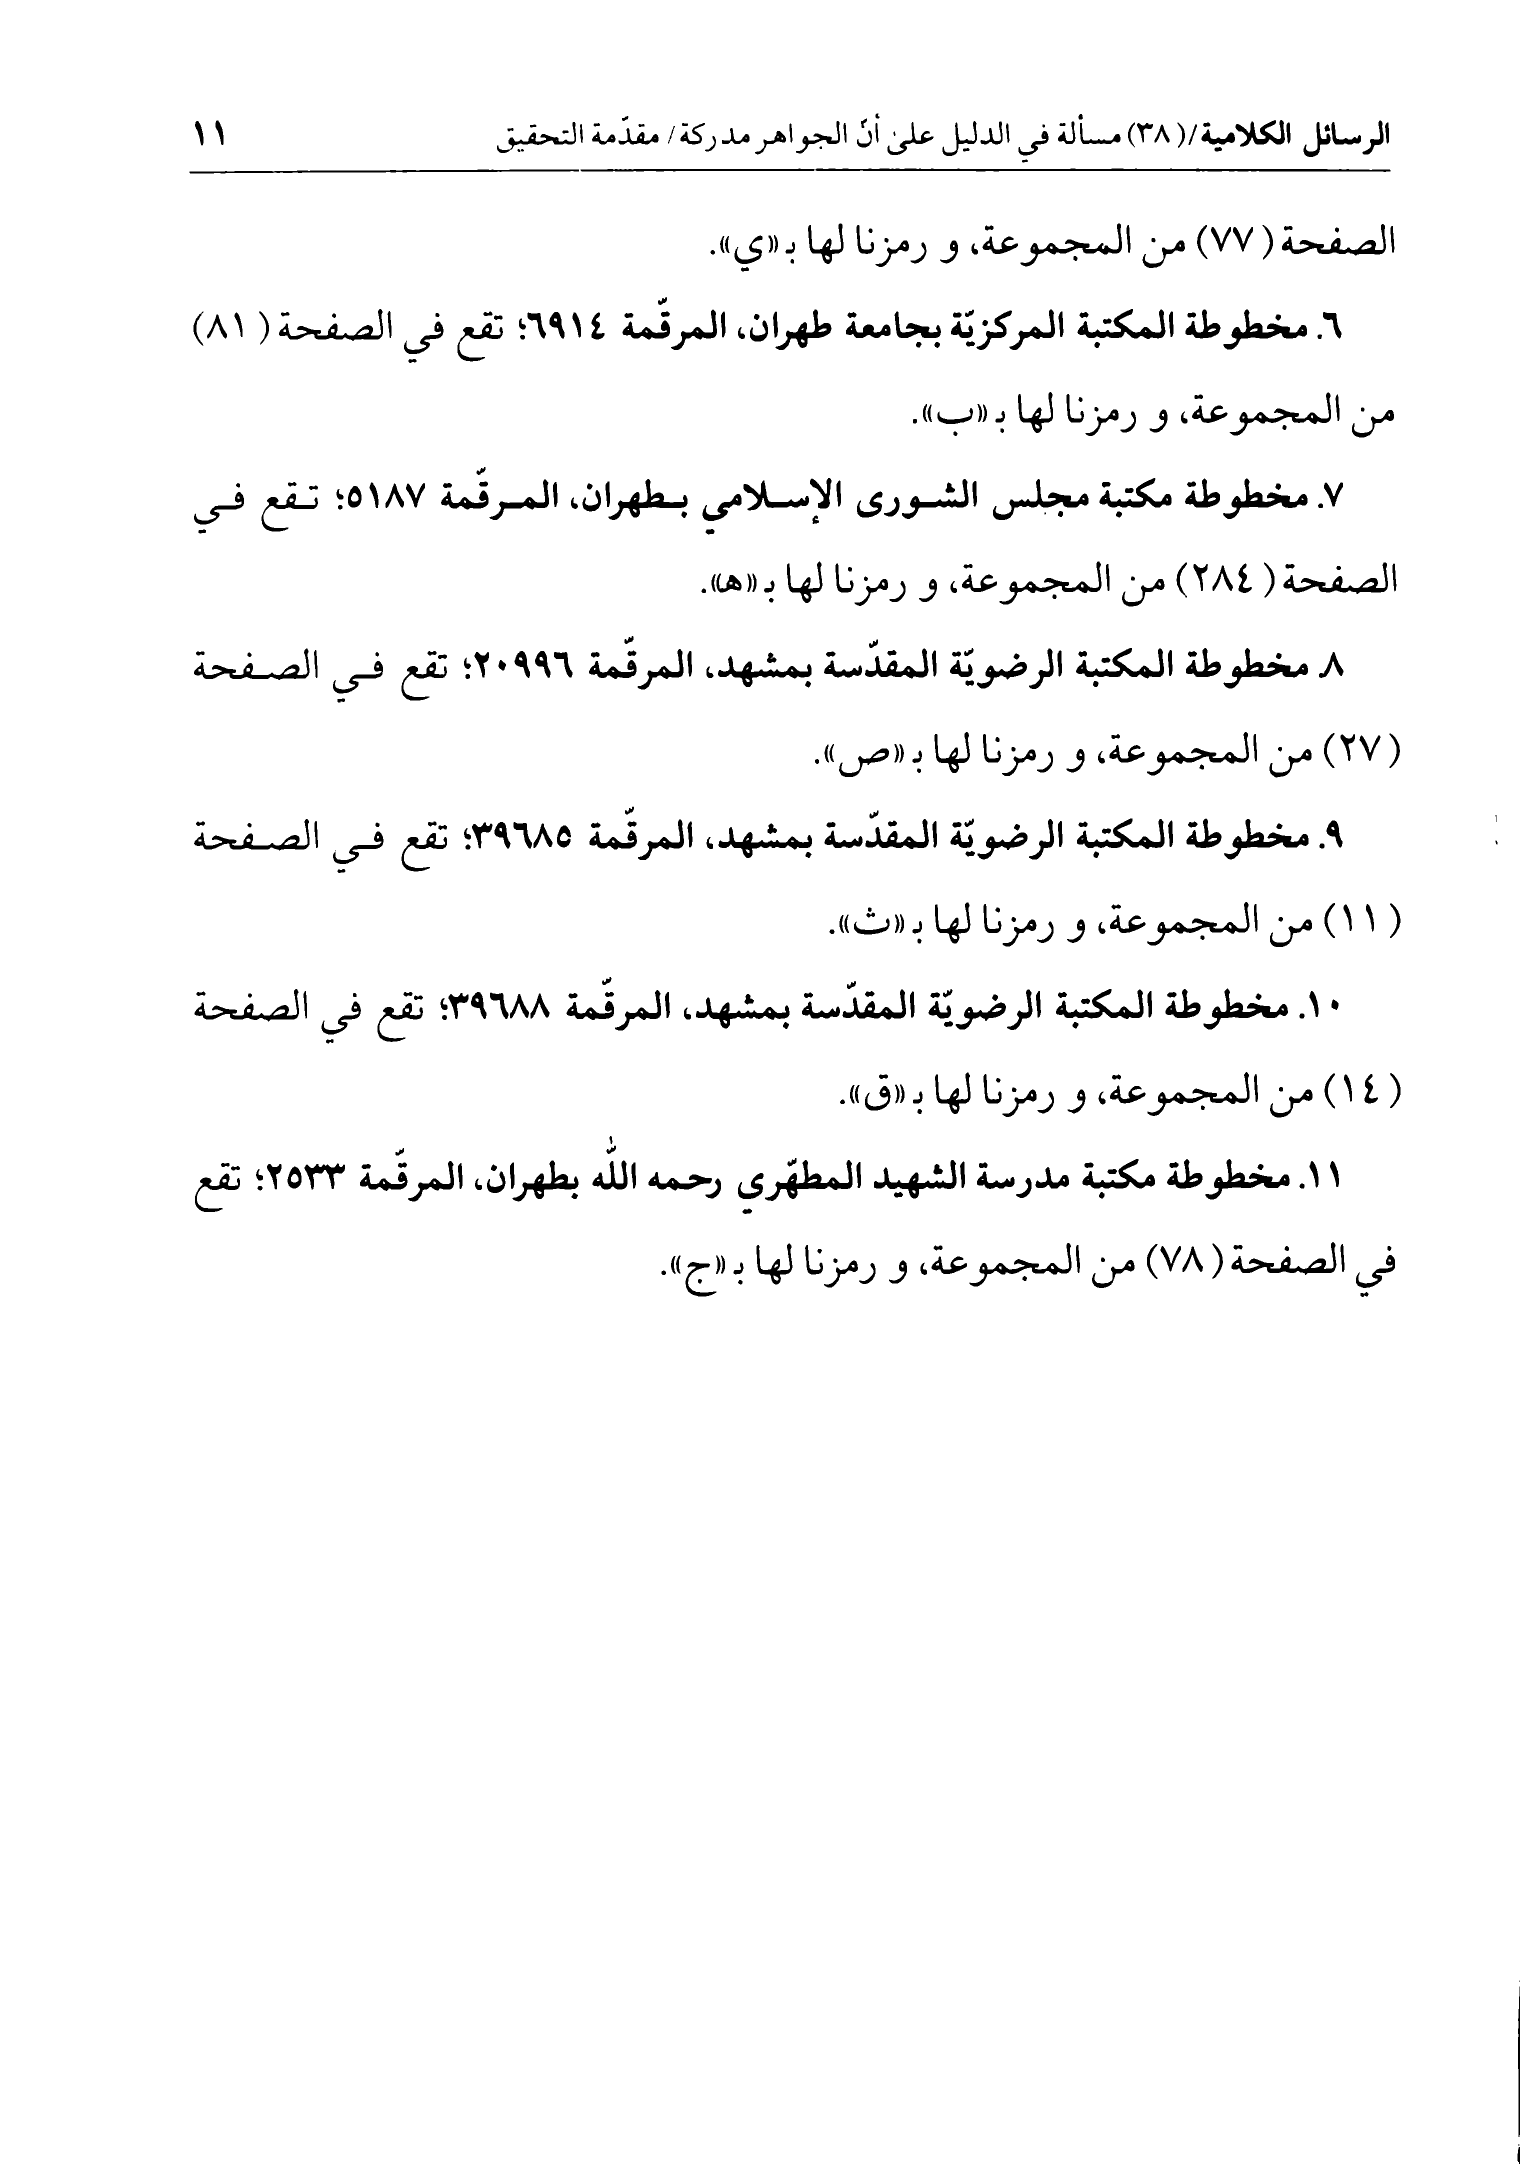 الرسائل الكلامية/(٣٨) مسألة في الدليل علىٰ أنّ الجواهر مدركة/ مقدّمة التحقيق ١١
الصفحة (٧٧) من المجموعة، و رمزنا لها بـ«ي».
٦. مخطوطة المكتبة المركزيّة بجامعة طهران، المرقّمة ٦٩١٤؛ تقع في الصفحة (٨١)
من المجموعة، و رمزنا لها بـ«ب».
٧. مخطوطة مكتبة مجلس الشـورى الإسـلامي بـطهران، المـرقّمة ٥١٨٧؛ تـقع فـي
الصفحة (٢٨٤) من المجموعة، و رمزنا لها بـ«هـ».
٨. مخطوطة المكتبة الرضويّة المقدّسة بمشهد، المرقّمة ٢٠٩٩٦؛ تقع فـي الصـفحة
(٢٧) من المجموعة، و رمزنا لها بـ«ص».
٩. مخطوطة المكتبة الرضويّة المقدّسة بمشهد، المرقّمة ٣٩٦٨٥؛ تقع فـي الصـفحة
(١١) من المجموعة، و رمزنا لها بـ«ث».
١٠. مخطوطة المكتبة الرضويّة المقدّسة بمشهد، المرقّمة ٣٩٦٨٨؛ تقع في الصفحة
(١٤) من المجموعة، و رمزنا لها بـ«ق».
١١. مخطوطة مكتبة مدرسة الشهيد المطهّري رحمه الله بطهران، المرقّمة ٢٥٣٣؛ تقع
في الصفحة (٧٨) من المجموعة، و رمزنا لها بـ«ج».